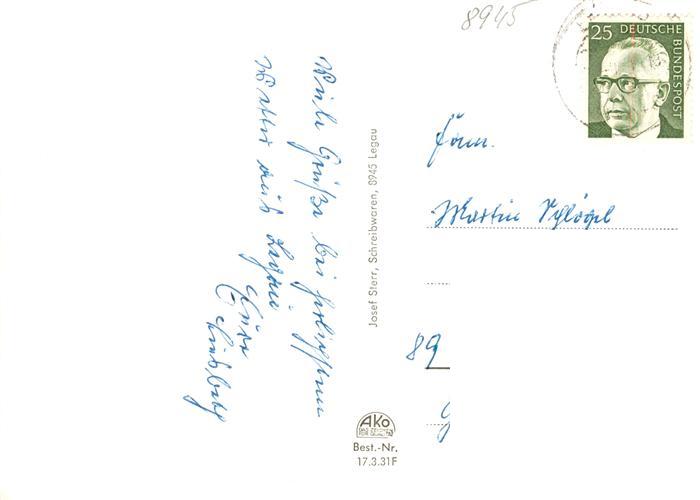 8945
25 DEUTSCHE BUNDESPOST
Viele Grüße bei herlichem
Wetter aus Legau
Josef Sterr, Schreibwaren, 8945 Legau
Fam.
Martin
89
AKO
Best.-Nr.
17.3.31F